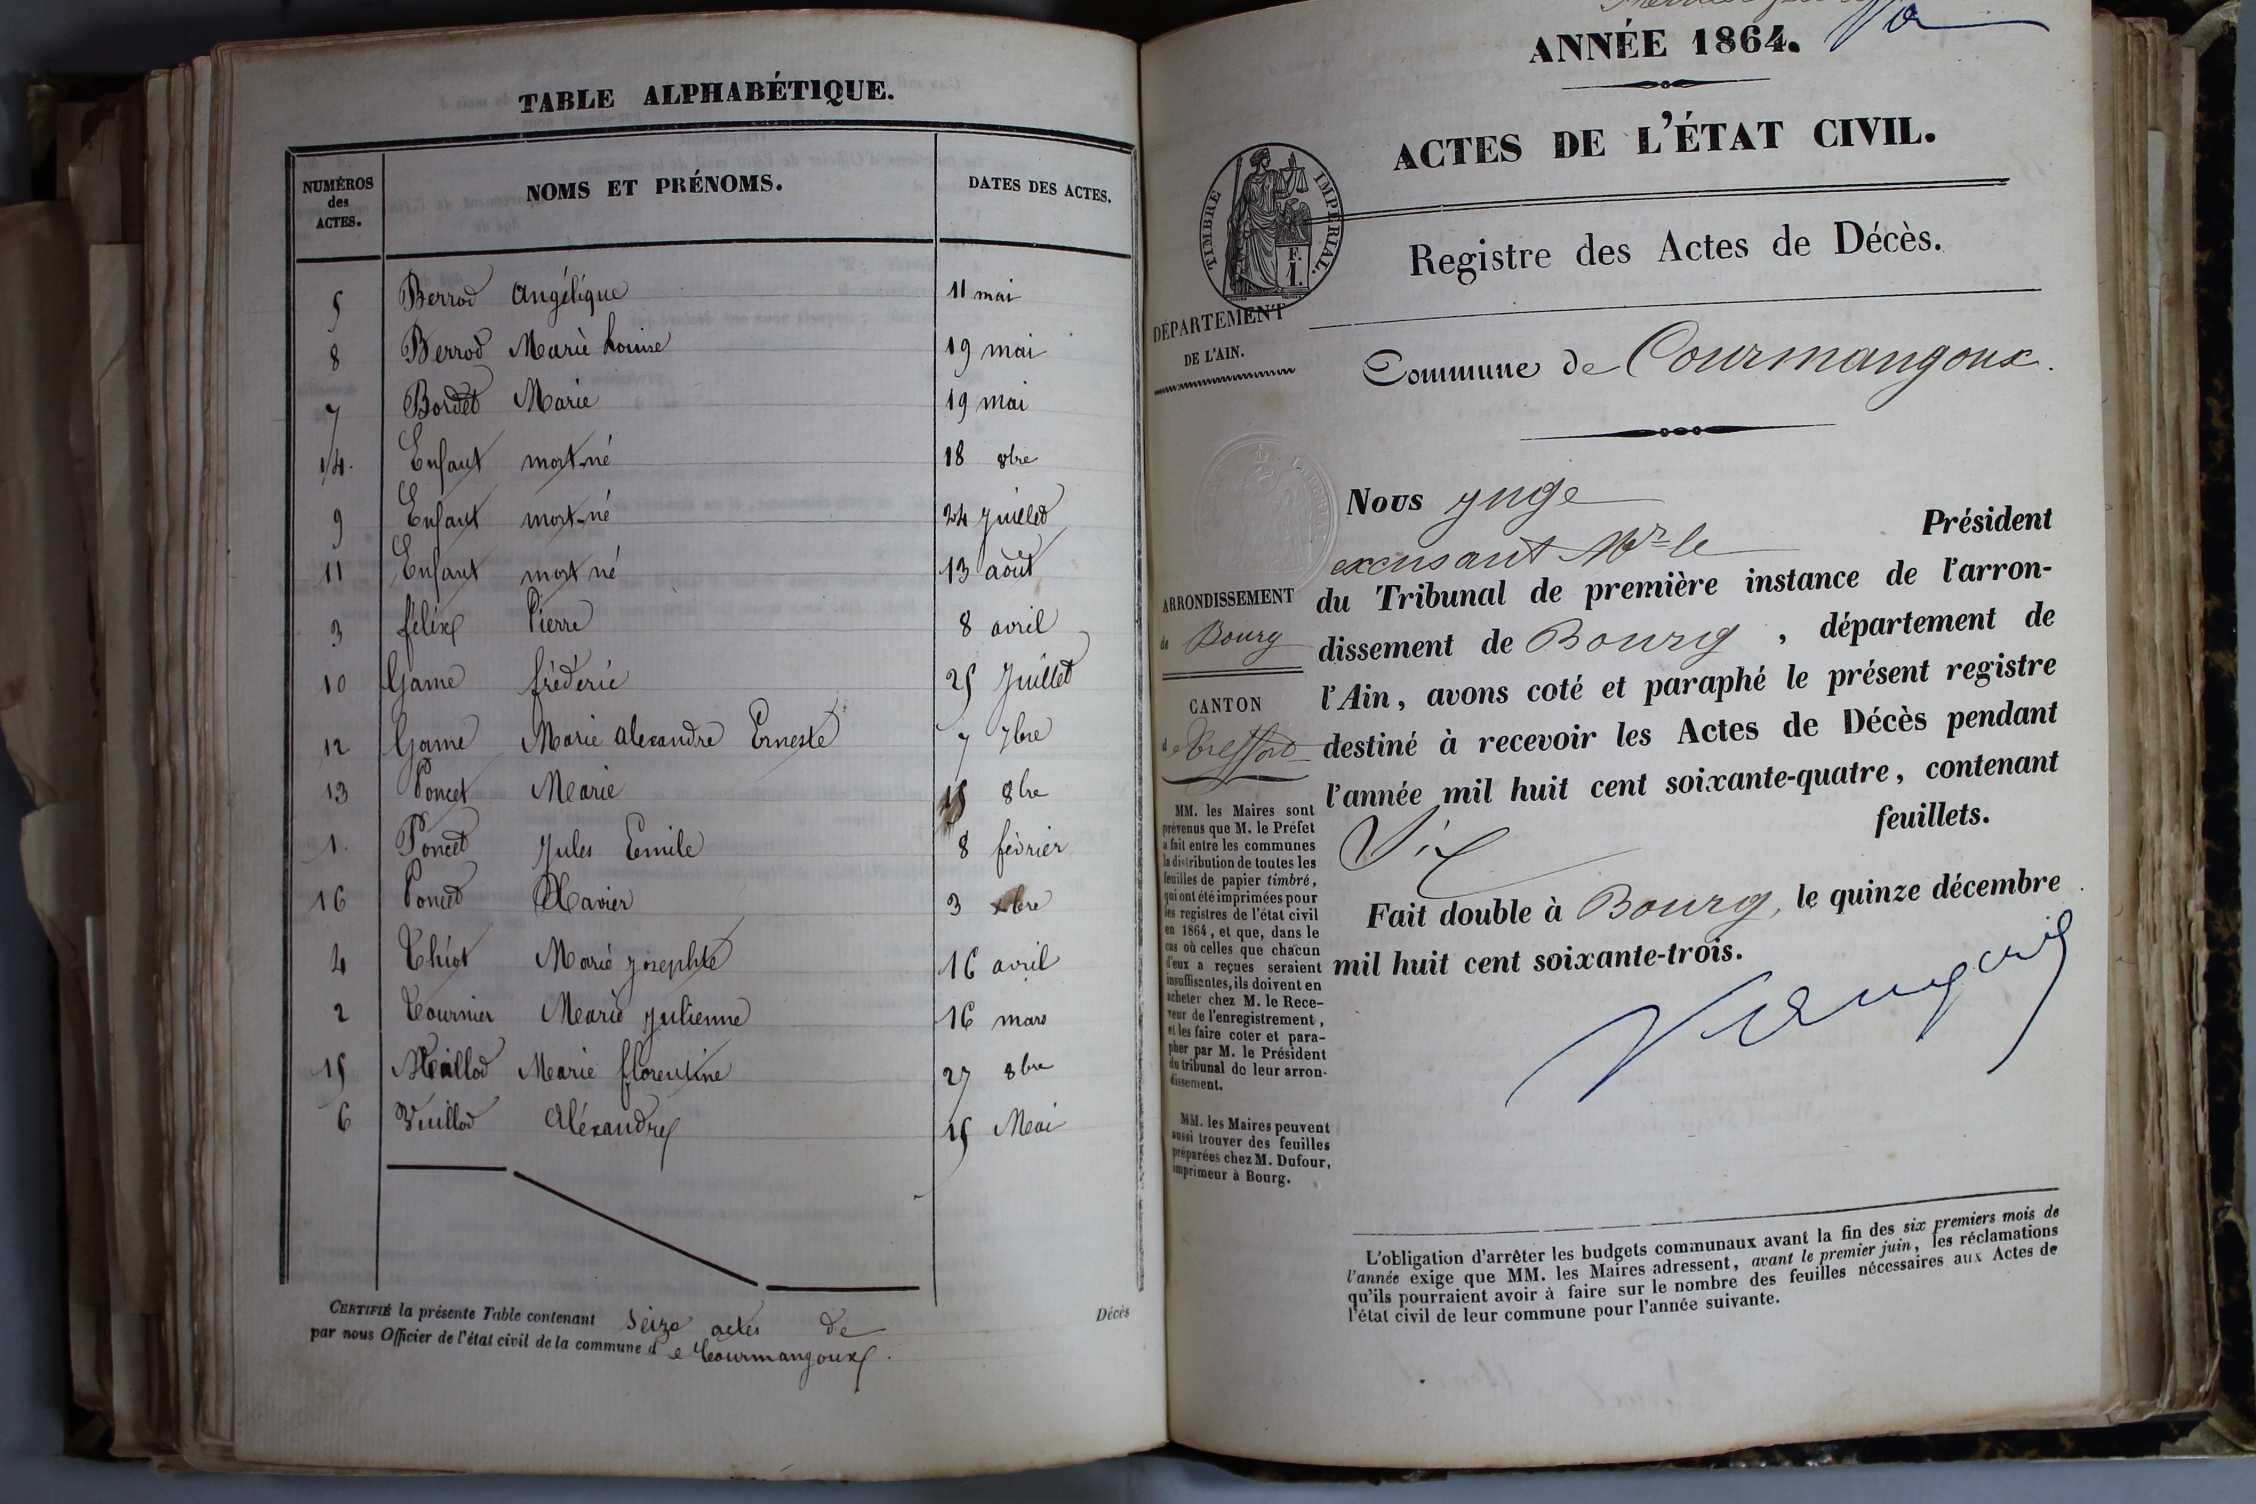 TABLE ALPHABÉTIQUE.
NUMÉROS des ACTES. NOMS ET PRÉNOMS. DATES DES ACTES.
5 Berrod Angélique 11 mai
8 Berrod Marie Louise 19 mai
7 Bordet Marie 19 mai
14. Enfant mort-né 18 8bre
9 Enfant mort-né 24 Juillet
11 Enfant mort né 13 août
3 félix Pierre 8 avril
10 Game frédéric 25 Juillet
12 Game Marie Alexandre Erneste 7 7bre
13 Poncet Marie 15 8bre
1. Poncet Jules Emile 8 février
16 Poncet Xavier 3 xbre
4 Thiot Marie Josephte 16 avril
2 Tournier Marie Julienne 16 mars
15 Maillod Marie florentine 27 8bre
6 Vuillod Aléxandre 15 Mai
CERTIFIÉ la présente Table contenant seize actes de Décès
par nous Officier de l'état civil de la commune d e Courmangoux.
ANNÉE 1864.
ACTES DE L'ÉTAT CIVIL.
TIMBRE IMPÉRIAL.
1 F.
Registre des Actes de Décès.
DÉPARTEMENT
DE L'AIN.
Commune de Courmangoux.
Nous Juge
excusant Mr le Président
du Tribunal de première instance de l'arron-
dissement de Bourg, département de
l'Ain, avons coté et paraphé le présent registre
destiné à recevoir les Actes de Décès pendant
l'année mil huit cent soixante-quatre, contenant
Six feuillets.
Fait double à Bourg, le quinze décembre
mil huit cent soixante-trois.
ARRONDISSEMENT
de Bourg
CANTON
de Treffort
MM. les Maires sont
prévenus que M. le Préfet
a fait entre les communes
la distribution de toutes les
feuilles de papier timbré,
qui ont été imprimées pour
les registres de l'état civil
en 1864, et que, dans le
cas où celles que chacun
d'eux a reçues seraient
insuffisantes, ils doivent en
acheter chez M. le Rece-
veur de l'enregistrement,
et les faire coter et para-
pher par M. le Président
du tribunal de leur arron-
dissement.
MM. les Maires peuvent
aussi trouver des feuilles
préparées chez M. Dufour,
imprimeur à Bourg.
L'obligation d'arrêter les budgets communaux avant la fin des six premiers mois de
l'année exige que MM. les Maires adressent, avant le premier juin, les réclamations
qu'ils pourraient avoir à faire sur le nombre des feuilles nécessaires aux Actes de
l'état civil de leur commune pour l'année suivante.